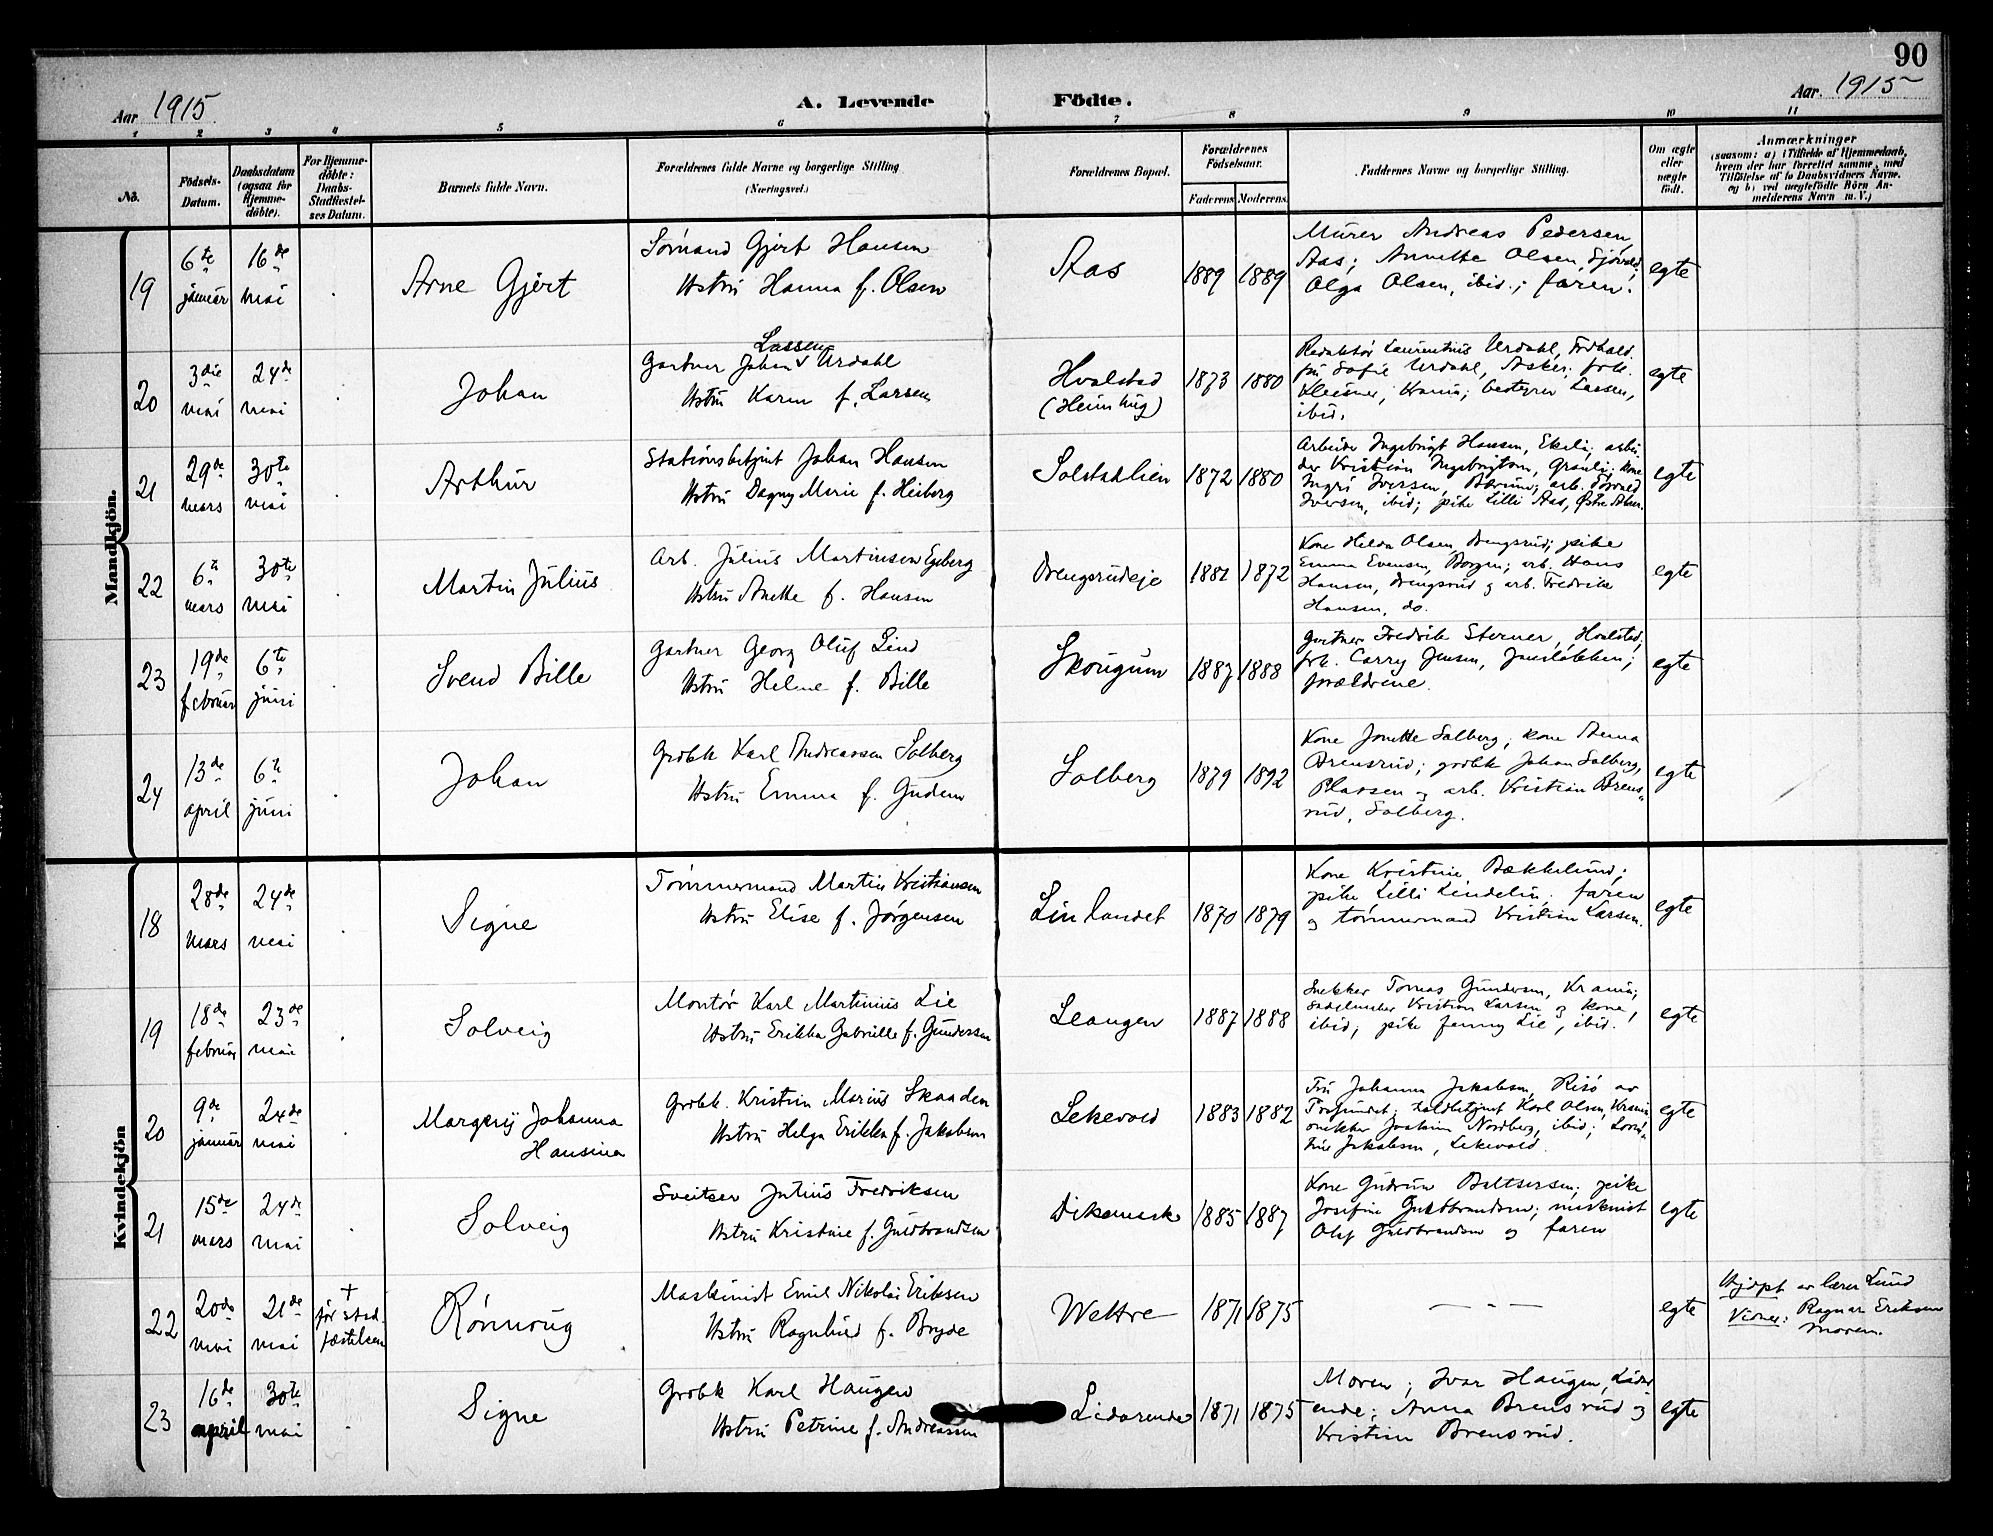 90
Aar 1915.
A. Levende Födte.
Aar. 1915
1 2 3 4 5 6 7 8 9 10 11
No.
Födsels-Datum.
Daabsdatum (ogsaa for Hjemme-döbte).
For Hjemme-döbte: Daabs-Stadfæstel-ses Datum.
Barnets fulde Navn.
Forældrenes fulde Navne og borgerlige Stilling (Næringsvei.)
Forældrenes Bopæl.
Forældrenes Födselsaar.
Faderens Moderens
Faddernes Navne og borgerlige Stilling.
Om ægte eller uægte födt.
Anmærkninger
(saasom: a) i Tilfælde af Hjemmedaab, hvem der har forrettet samme, med Tilföielse af to Daabsvidners Navne, og b) ved uægtefödte Börn An-melderens Navn m. V.)
Mandkjön.
19
6te januar
16de mai
Arne Gjert
Sömand Gjert Hansen
Hstru Hanna f. Olsen
Aas
1889 1889
Murer Andreas Pedersen,
Aas; Annette Olsen,
Olga Olsen, ibid.; faren.
egte
20
3die mai
24de mai
Johan
Gartner Johan Lassen Urdahl
Hstru Karen f. Larsen
Hvalstad
(Heimhug)
1873 1880
Redaktör Laurentius Urdahl,
fru Sofie Urdahl, Asker; frk.
Kra.nia; bestyrer Lassen,
ibid.
egte
21
29de mars
30te mai
Arthur
Stationsbetjent Johan Hansen
Hstru Dagny Marie f. Heiberg
Solstadlien
1872 1880
Arbeider Ingebrigt Hansen, Ekeli; arbei-
der Kristian Ingebrigtsen, kone
Iversen, Bærum; arb.
Iversen, ibid; pike Lilli Aas, Østre
egte
22
6te mars
30te mai
Martin Julius
Arb. Julius Martinsen Egeberg
Hstru Anette f. Hansen
Drengsrudeje
1881 1872
Kone Helda Olsen, Drengsrud; pike
Emma Evensen, Borgen; arb. Hans
Hansen, Drengsrud og arb. Fredrik
Hansen, do.
egte
23
19de februar
6te juni
Svend Bille
Gartner Georg Oluf Lind
Hstru Helene f. Bille
Skougum
1887 1888
Gartner Fredrik Sterner, Hvalstad;
frk. Carry Jensen, Jansløkken;
forældrene.
egte
24
13de april
6te juni
Johan
Grdbk Karl Andreassen Solberg
Hstru Emma f. Gudem
Solberg
1879 1892
Kone Jonette Solberg; kone Anna
Brensrud; grdbk Johan Solberg,
Plassen og arb. Kristian Brens-
rud, Solberg.
egte
Kvindekjön
18
28de mars
24de mai
Signe
Tömmermand Martin Kristiansen
Hstru Elise f. Jørgensen
Linlandet
1870 1879
Kone Kristine Bækkelund;
pike Lilli Lindelin; faren
og tömmermand Kristian Larsen.
egte
19
18de februar
23de mai
Solveig
Montör Karl Martinius Lie
Hstru Erikka Gabrielle f. Gundersen
Leangen
1887 1888
Snekker Tomas Gundersen, Kr.ania;
Kristian Larsen og kone,
ibid; pike Jenny Lie, ibid.
egte
20
9de januar
24de mai
Margery Johanna
Hansina
Grdbk. Kristian Marius Skaaden
Hstru Helga Erikka f. Jakobsen
Lekevold
1883 1882
Fru Johanna Jakobsen, Risö av
toldbetjent Karl Olsen, Kr.ania
snekker Joakim Nordberg, ibid;
Jakobsen, Lekevold
egte
21
15de mars
24de mai
Solveig
Sveitser Julius Fredriksen
Hstru Kristine f. Guldbrandsen
Dikemark
1885 1887
Kone Gudrun Baltsersen; pike
Josefine Guldbrandsen; maskinist
Olaf Guldbrandsen og faren
egte
22
20de mai
21de mai
+
för stad-
fæstelsen
Rönnoug
Maskinist Emil Nikolai Eriksen
Hstru Ragnhild f. Bryde
Wettre
1871 1875
— - —
egte
Hjdöpt av lærer Lund
Vidner: Ragnar Eriksen
moren.
23
16de april
30te mai
Signe
Grdbk Karl Haugen
Hstru Petrine f. Andreassen
Lidarende
1871 1875
Moren; Ivar Haugen, Lidar-
ende; Anna Brensrud og
Kristian Brensrud.
egte